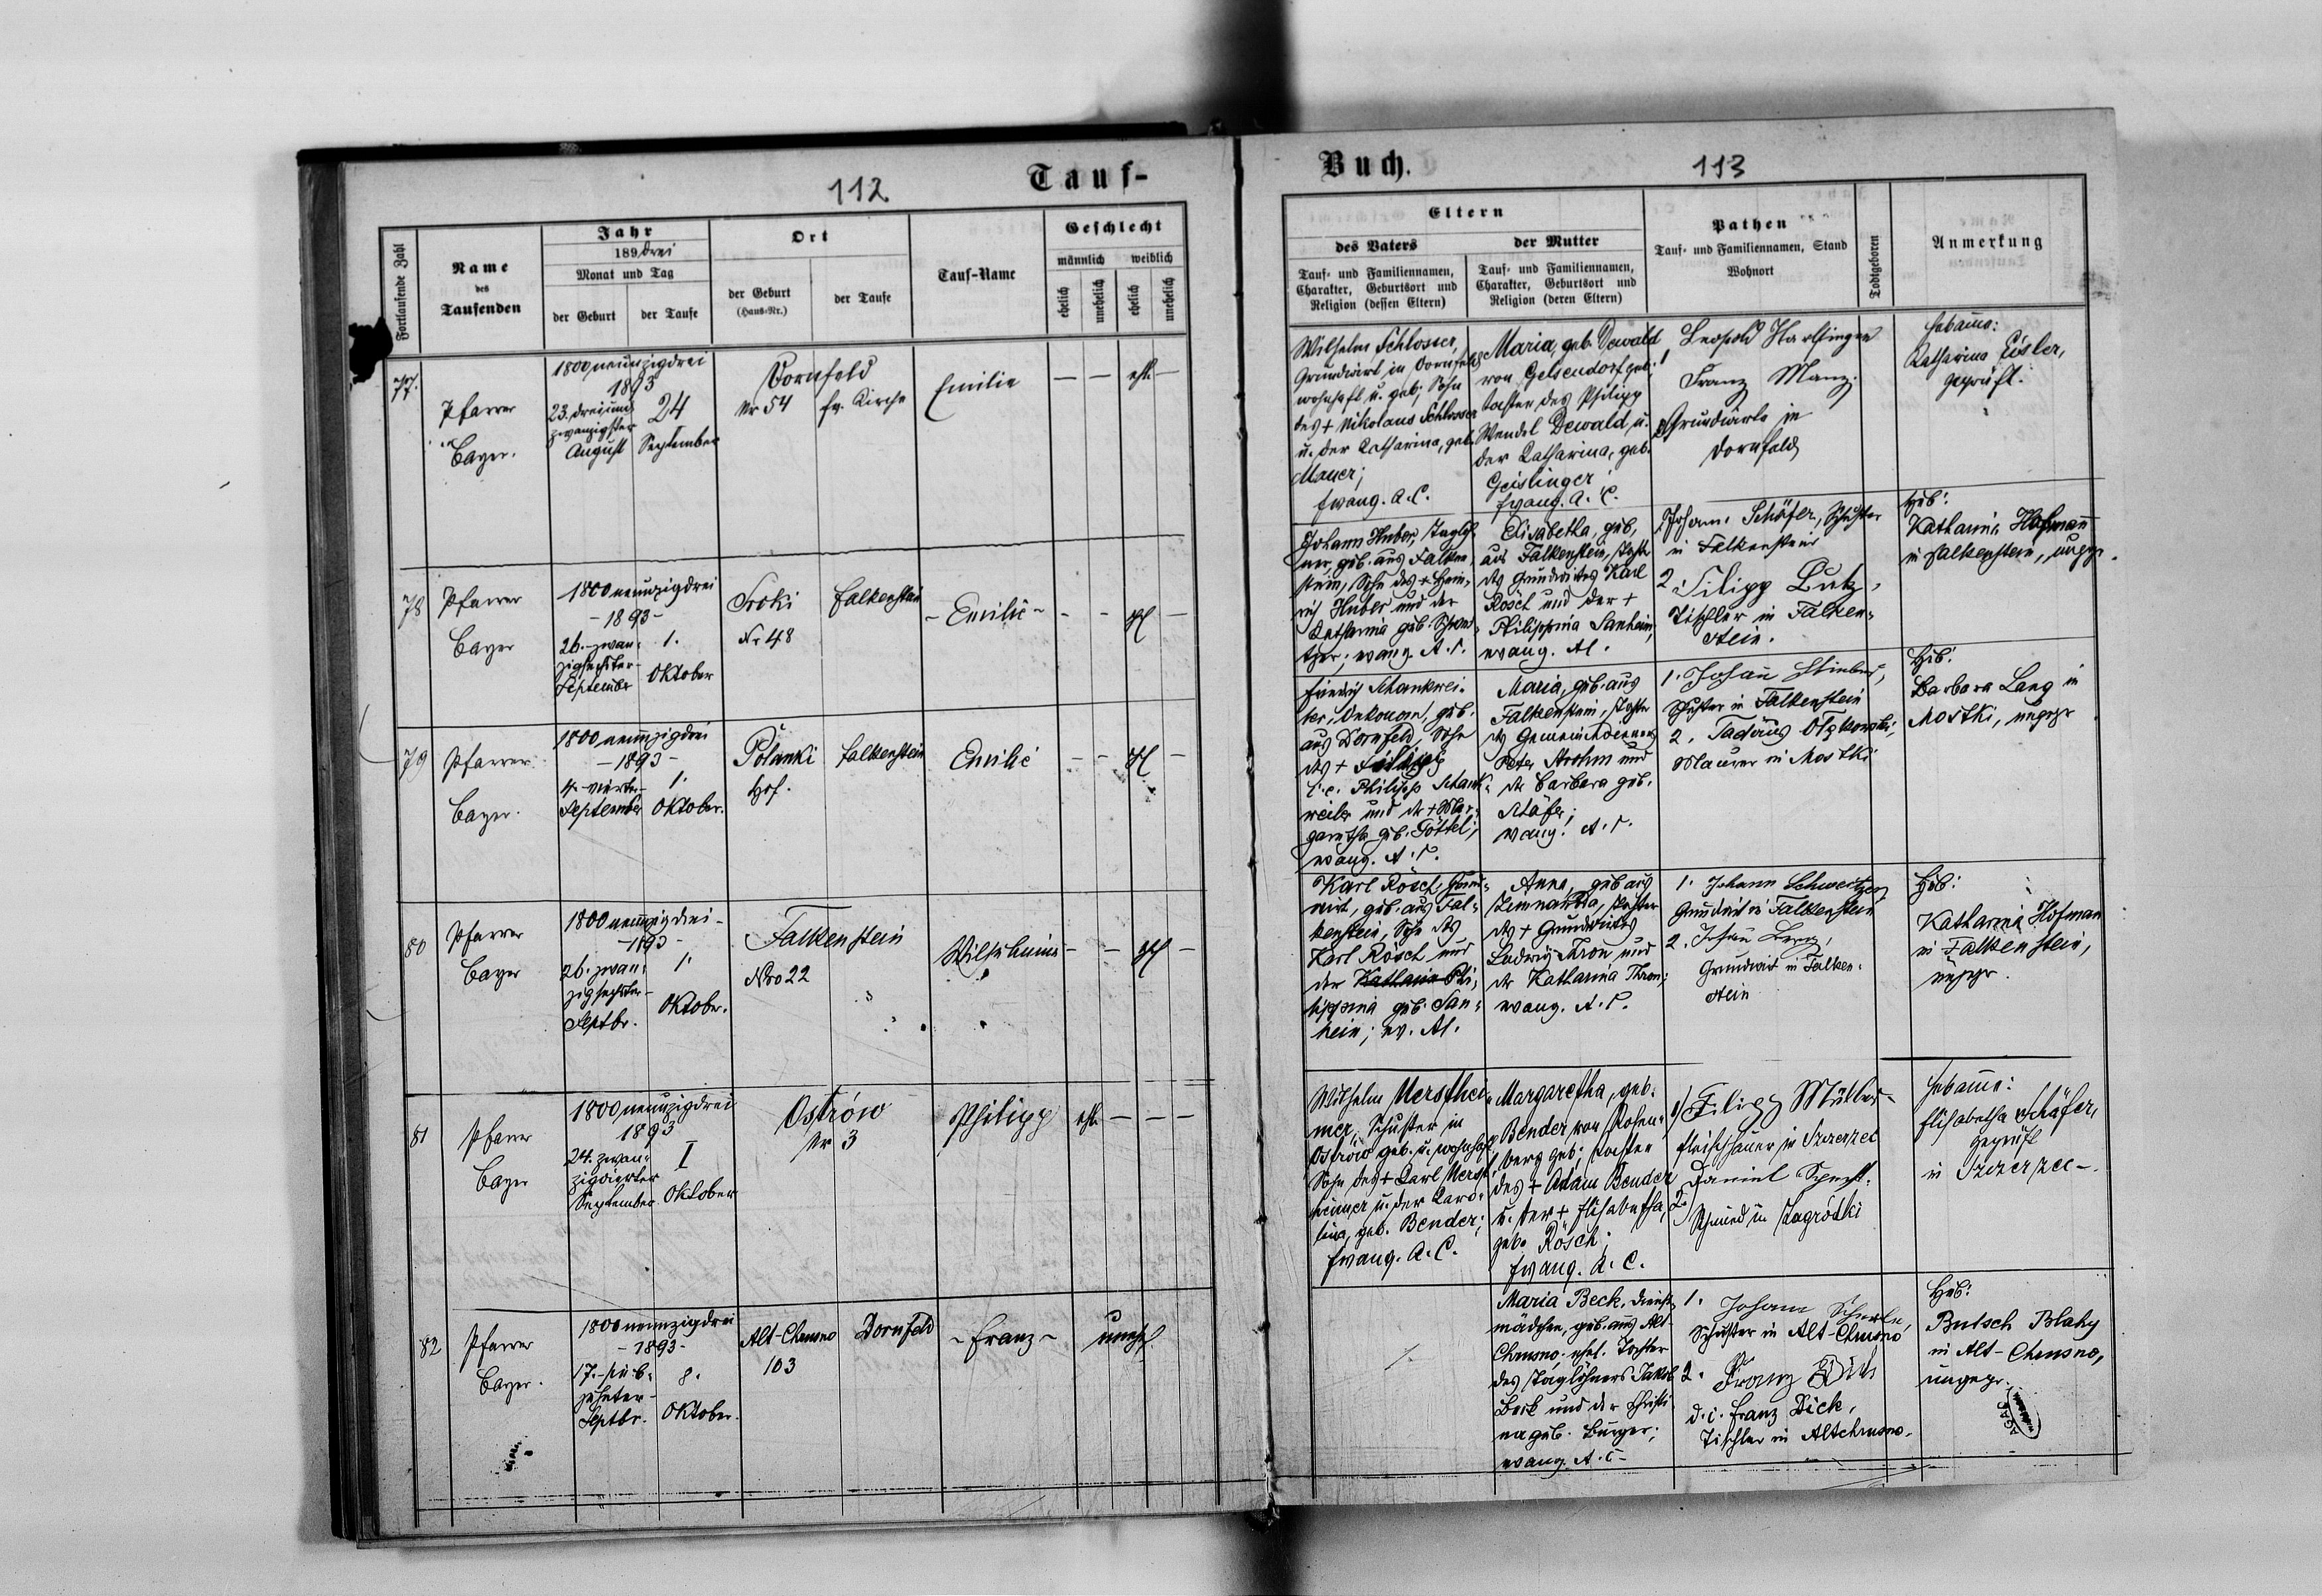 112
Tauf-
Buch.
113
Fortlaufende Zahl
Name
des
Taufenden
Jahr
189drei
Monat und Tag
der Geburt
der Taufe
Ort
der Geburt
(Haus-Nr.)
der Taufe
Tauf-Name
Geschlecht
männlich
weiblich
ehelich
unehelich
ehelich
unehelich
Eltern
des Vaters
der Mutter
Tauf- und Familiennamen,
Charakter, Geburtsort und
Religion (dessen Eltern)
Tauf- und Familiennamen,
Charakter, Geburtsort und
Religion (deren Eltern)
Pathen
Tauf- und Familiennamen, Stand
Wohnort
Todtgeboren
Anmerkung
77.
Pfarrer
Bayer.
1800neunzigdrei
1893
23. dreiund
zwanzigster
August
24
September
Dornfeld
Nr 54
ev. Kirche
Emilie
— — ehl. —
Wilhelm Schlosser,
Grundwirt in Dornfeld
wohnhaft u. geb; Sohn
des + Nikolaus Schlosser
u. der Katharina, geb.
Mauer;
Evang. A. C.
Maria, geb. Dewald
von Gelsendorf geb;
Tochter des Philipp
Wendel Dewald, u.
der Katharina, geb.
Geislinger
Evang. A. C.
Leopold Harlfinger
Franz Manz.
Grundwirte in
Dornfeld
Hebamme:
Katharina Eisler,
geprüft.
78
Pfarrer
Bayer
1800neunzigdrei
- 1893 -
26. - zwan-
zigsechster -
September
1.
Oktober
Sroki
Nr 48
Falkenstein
- Emilie -
- - ehl -
Johann Huber, Taglöh-
ner, geb. aus Falken-
stein, Sohn des + Hein-
rich Huber und der
Katharina geb. Schweit-
zer; evang. A. C.
Elisabetha, geb,
aus Falkenstein, Tochter
des Grundwirtes Karl
Rösch und der +
Philippina Sanheim,
evang. AC.
Johann Schäfer, Schuster
in Falkenstein
2. Filipp Lutz,
Tischler in Falken-
stein.
Heb:
Katharina Hofmann
in Falkenstein, ungepr.
79
Pfarrer
Bayer.
1800neunzigdrei
- 1893 -
4. vierter -
September
1.
Oktober.
Polanki
Hof.
Falkenstein
Emilie
- - ehl -
Friedrich Schankwei-
ler, Oekonom, geb.
aus Dornfeld, Sohn
des + Filipp
i. e. Philipp Schank-
weiler und der + Mar-
garetha geb. Töttel;
evang. A. C.
Maria, geb. aus
Falkenstein, Tochter
des Gemeindedieners
Peter Strohm und
der Barbara geb.
Schäfer;
evang. A. C.
1. Johann Stieber,
Schuster in Falkenstein
2.
Maurer in Mostki
Heb:
Barbara Lang in
Mostki, ungepr
80
Pfarrer
Bayer
1800neunzigdrei -
- 1893 -
26. zwan-
zigsechster -
Septbr.
1.
Oktober.
Falkenstein
Nro 22
Wilhelmine
- - ehl -
Karl Rösch, Grund-
wirt, geb. aus Fal-
kenstein, Sohn des
Karl Rösch und
der Katharin Phi-
lippina geb. San-
heim; ev. AC.
Anna, geb. aus
Zimnawoda, Tochter
des + Grundwirtes
Ludwig Kron und
der Katharina Kron;
evang. A. C.
1. Johann Schweitzer
Grundwirt in Falkenstein
2. Johann Berg,
Grundwirt in Falken-
stein
Heb:
Katharina Hofman
in Falkenstein,
ungepr.
81
Pfarrer
Bayer
1800neunzigdrei
1893
24. zwan-
zigvierter
September
I
Oktober
Ostrów
Nr 3
Philipp
ehl. — — —
Wilhelm Mersthei-
mer, Schuster in
Ostrów geb. u. wohnhaft,
Sohn des + Karl Merst-
heimer u. der Karo-
lina, geb. Bender;
Evang. A. C.
Margaretha, geb.
Bender von Rosen-
berg geb; Tochter
des + Adam Bender
u. der + Elisabetha,
geb. Rösch;
Evang. A. C.
1) Filipp Müller
Fleischhauer in Szczerzec
2) Daniel Specht.
Schmied in Zagródki
Hebamme:
Elisabetha Schäfer,
geprüft
in Szczerzec -.
82
Pfarrer
Bayer.
1800neunzigdrei
- 1893 -
17. - sieb-
zehnter -
Septbr.
8.
Oktober.
Alt-Chrusno
103
Dornfeld
- Franz -
unehl.
Maria Beck, Dienst-
mädchen, geb. aus Alt-
Chrusno; ehel. Tochter
des Taglöhners Jakob
Beck und der Christi-
na geb. Burger;
evang. A. C -
1. Johann
Schuster in Alt-Chrusno
2. Franz Dick
d. i. Franz Dick,
Tischler in Altchrusno.
Heb:
Butsch Blahy
in Alt-Chrusno,
ungepr.
AGAD